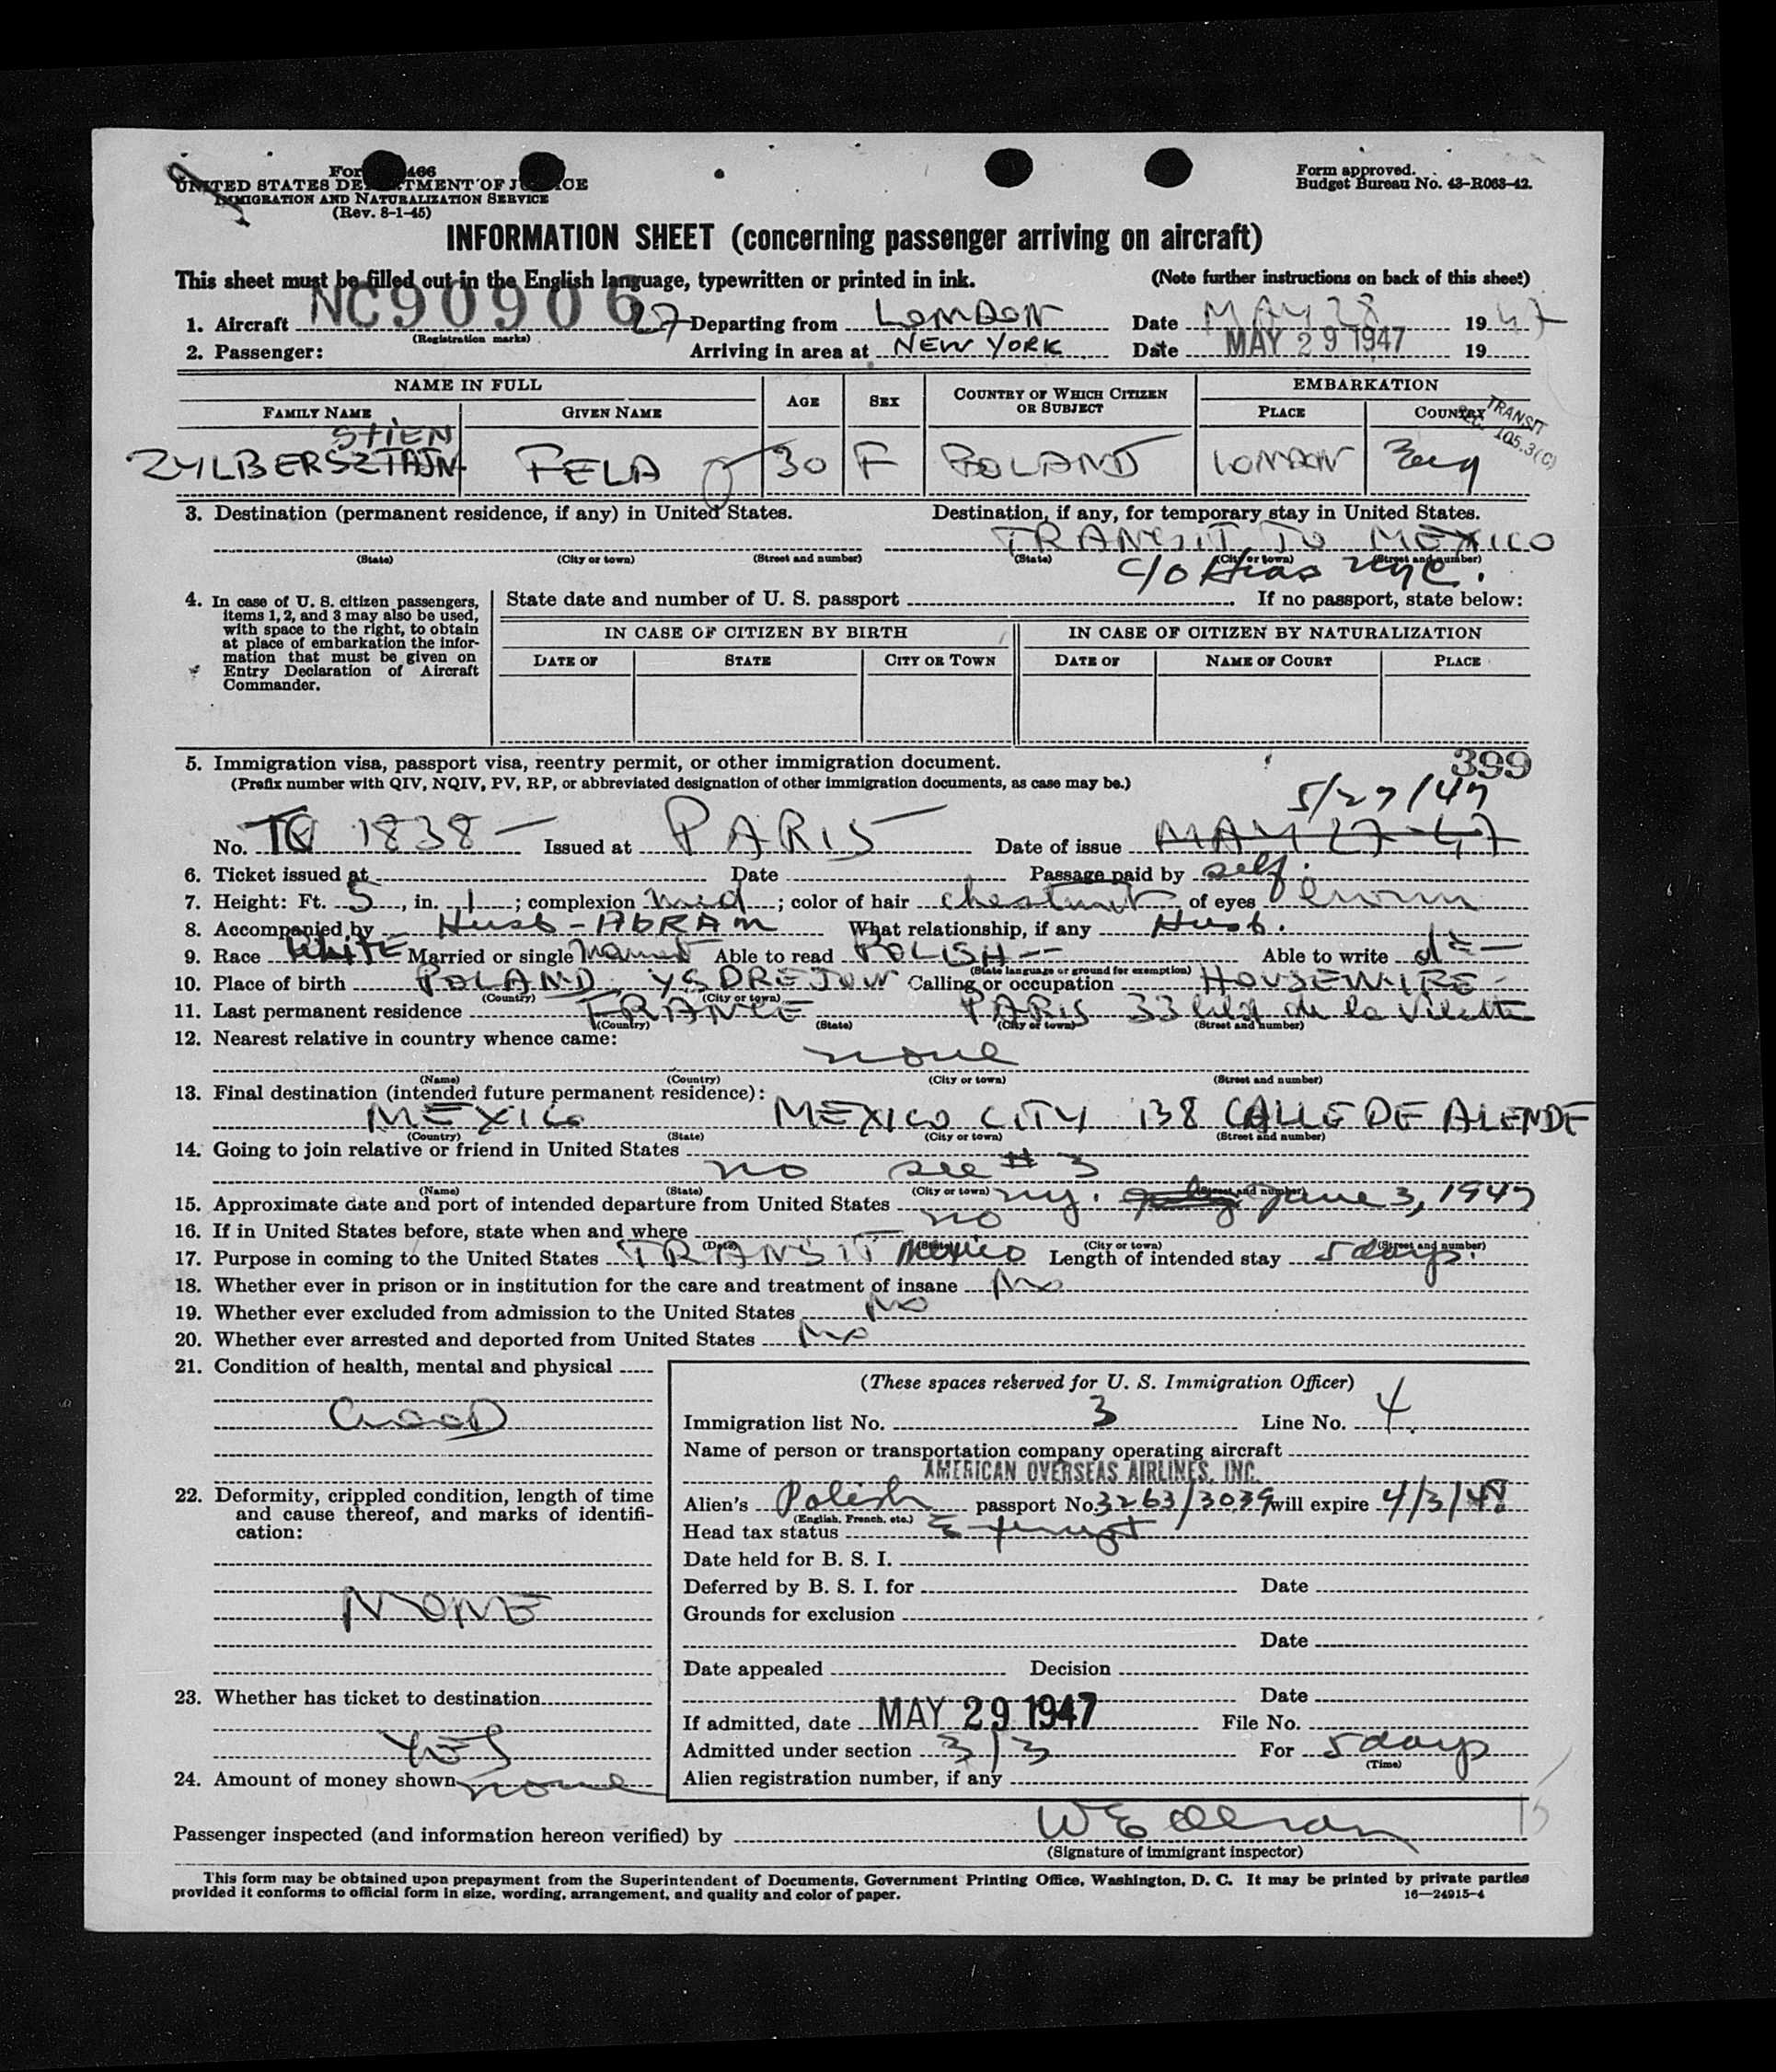 Form 466
UNITED STATES DEPARTMENT OF JUSTICE
IMMIGRATION AND NATURALIZATION SERVICE
(Rev. 8-1-45)
Form approved.
Budget Bureau No. 43-R063-42.
INFORMATION SHEET (concerning passenger arriving on aircraft)
This sheet must be filled out in the English language, typewritten or printed in ink. (Note further instructions on back of this sheet)
1. Aircraft NC90906 27 Departing from LONDON Date MAY 28 1947
(Registration marks)
2. Passenger: Arriving in area at NEW YORK Date MAY 29 1947 19
NAME IN FULL AGE SEX COUNTRY OF WHICH CITIZEN OR SUBJECT EMBARKATION
FAMILY NAME GIVEN NAME PLACE COUNTRY
TRANSIT
SEC. 105.3(C)
STIEN
ZYLBERSZTAJN FELA 30 F POLAND LONDON Eng
3. Destination (permanent residence, if any) in United States. Destination, if any, for temporary stay in United States.
TRANSIT TO MEXICO
(State) (City or town) (Street and number) (State) (City or town) (Street and number)
c/o Hias NYC.
4. In case of U. S. citizen passengers, items 1, 2, and 3 may also be used, with space to the right, to obtain at place of embarkation the information that must be given on Entry Declaration of Aircraft Commander.
State date and number of U. S. passport . If no passport, state below:
IN CASE OF CITIZEN BY BIRTH IN CASE OF CITIZEN BY NATURALIZATION
DATE OF STATE CITY OR TOWN DATE OF NAME OF COURT PLACE
5. Immigration visa, passport visa, reentry permit, or other immigration document. 399
(Prefix number with QIV, NQIV, PV, RP, or abbreviated designation of other immigration documents, as case may be.)
5/27/47
No. 1838 Issued at PARIS Date of issue MAY 27-47
6. Ticket issued at Date Passage paid by self.
7. Height: Ft. 5, in. 1; complexion med; color of hair chestnut of eyes brown
8. Accompanied by Husb - ABRAM What relationship, if any Husb.
9. Race WHITE Married or single Married Able to read POLISH Able to write do
(State language or ground for exemption)
10. Place of birth POLAND YSDREJOW Calling or occupation HOUSEWIFE
(Country) (City or town)
11. Last permanent residence FRANCE PARIS 33 bld de la Vilette
(Country) (State) (City or town) (Street and number)
12. Nearest relative in country whence came:
none
(Name) (Country) (City or town) (Street and number)
13. Final destination (intended future permanent residence):
MEXICO MEXICO CITY 138 CALLE DE ALENDE
(Country) (State) (City or town) (Street and number)
14. Going to join relative or friend in United States
no see #3
(Name) (State) (City or town) (Street and number)
15. Approximate date and port of intended departure from United States NY. June 3, 1947
16. If in United States before, state when and where no
(Date) (State) (City or town) (Street and number)
17. Purpose in coming to the United States TRANSIT Mexico Length of intended stay 5 days.
18. Whether ever in prison or in institution for the care and treatment of insane No
19. Whether ever excluded from admission to the United States No
20. Whether ever arrested and deported from United States No
21. Condition of health, mental and physical
GOOD
22. Deformity, crippled condition, length of time and cause thereof, and marks of identification:
NONE
23. Whether has ticket to destination
YES
24. Amount of money shown none
(These spaces reserved for U. S. Immigration Officer)
Immigration list No. 3 Line No. 4
Name of person or transportation company operating aircraft
AMERICAN OVERSEAS AIRLINES, INC.
Alien's Polish passport No. 3263/3039 will expire 4/3/48
(English, French, etc.)
Head tax status Exempt
Date held for B. S. I.
Deferred by B. S. I. for Date
Grounds for exclusion
Date
Date appealed Decision
Date
If admitted, date MAY 29 1947 File No.
Admitted under section 3/3 For 5 days
(Time)
Alien registration number, if any
Passenger inspected (and information hereon verified) by
(Signature of immigrant inspector)
This form may be obtained upon prepayment from the Superintendent of Documents, Government Printing Office, Washington, D. C. It may be printed by private parties
provided it conforms to official form in size, wording, arrangement, and quality and color of paper. 16—24915-4